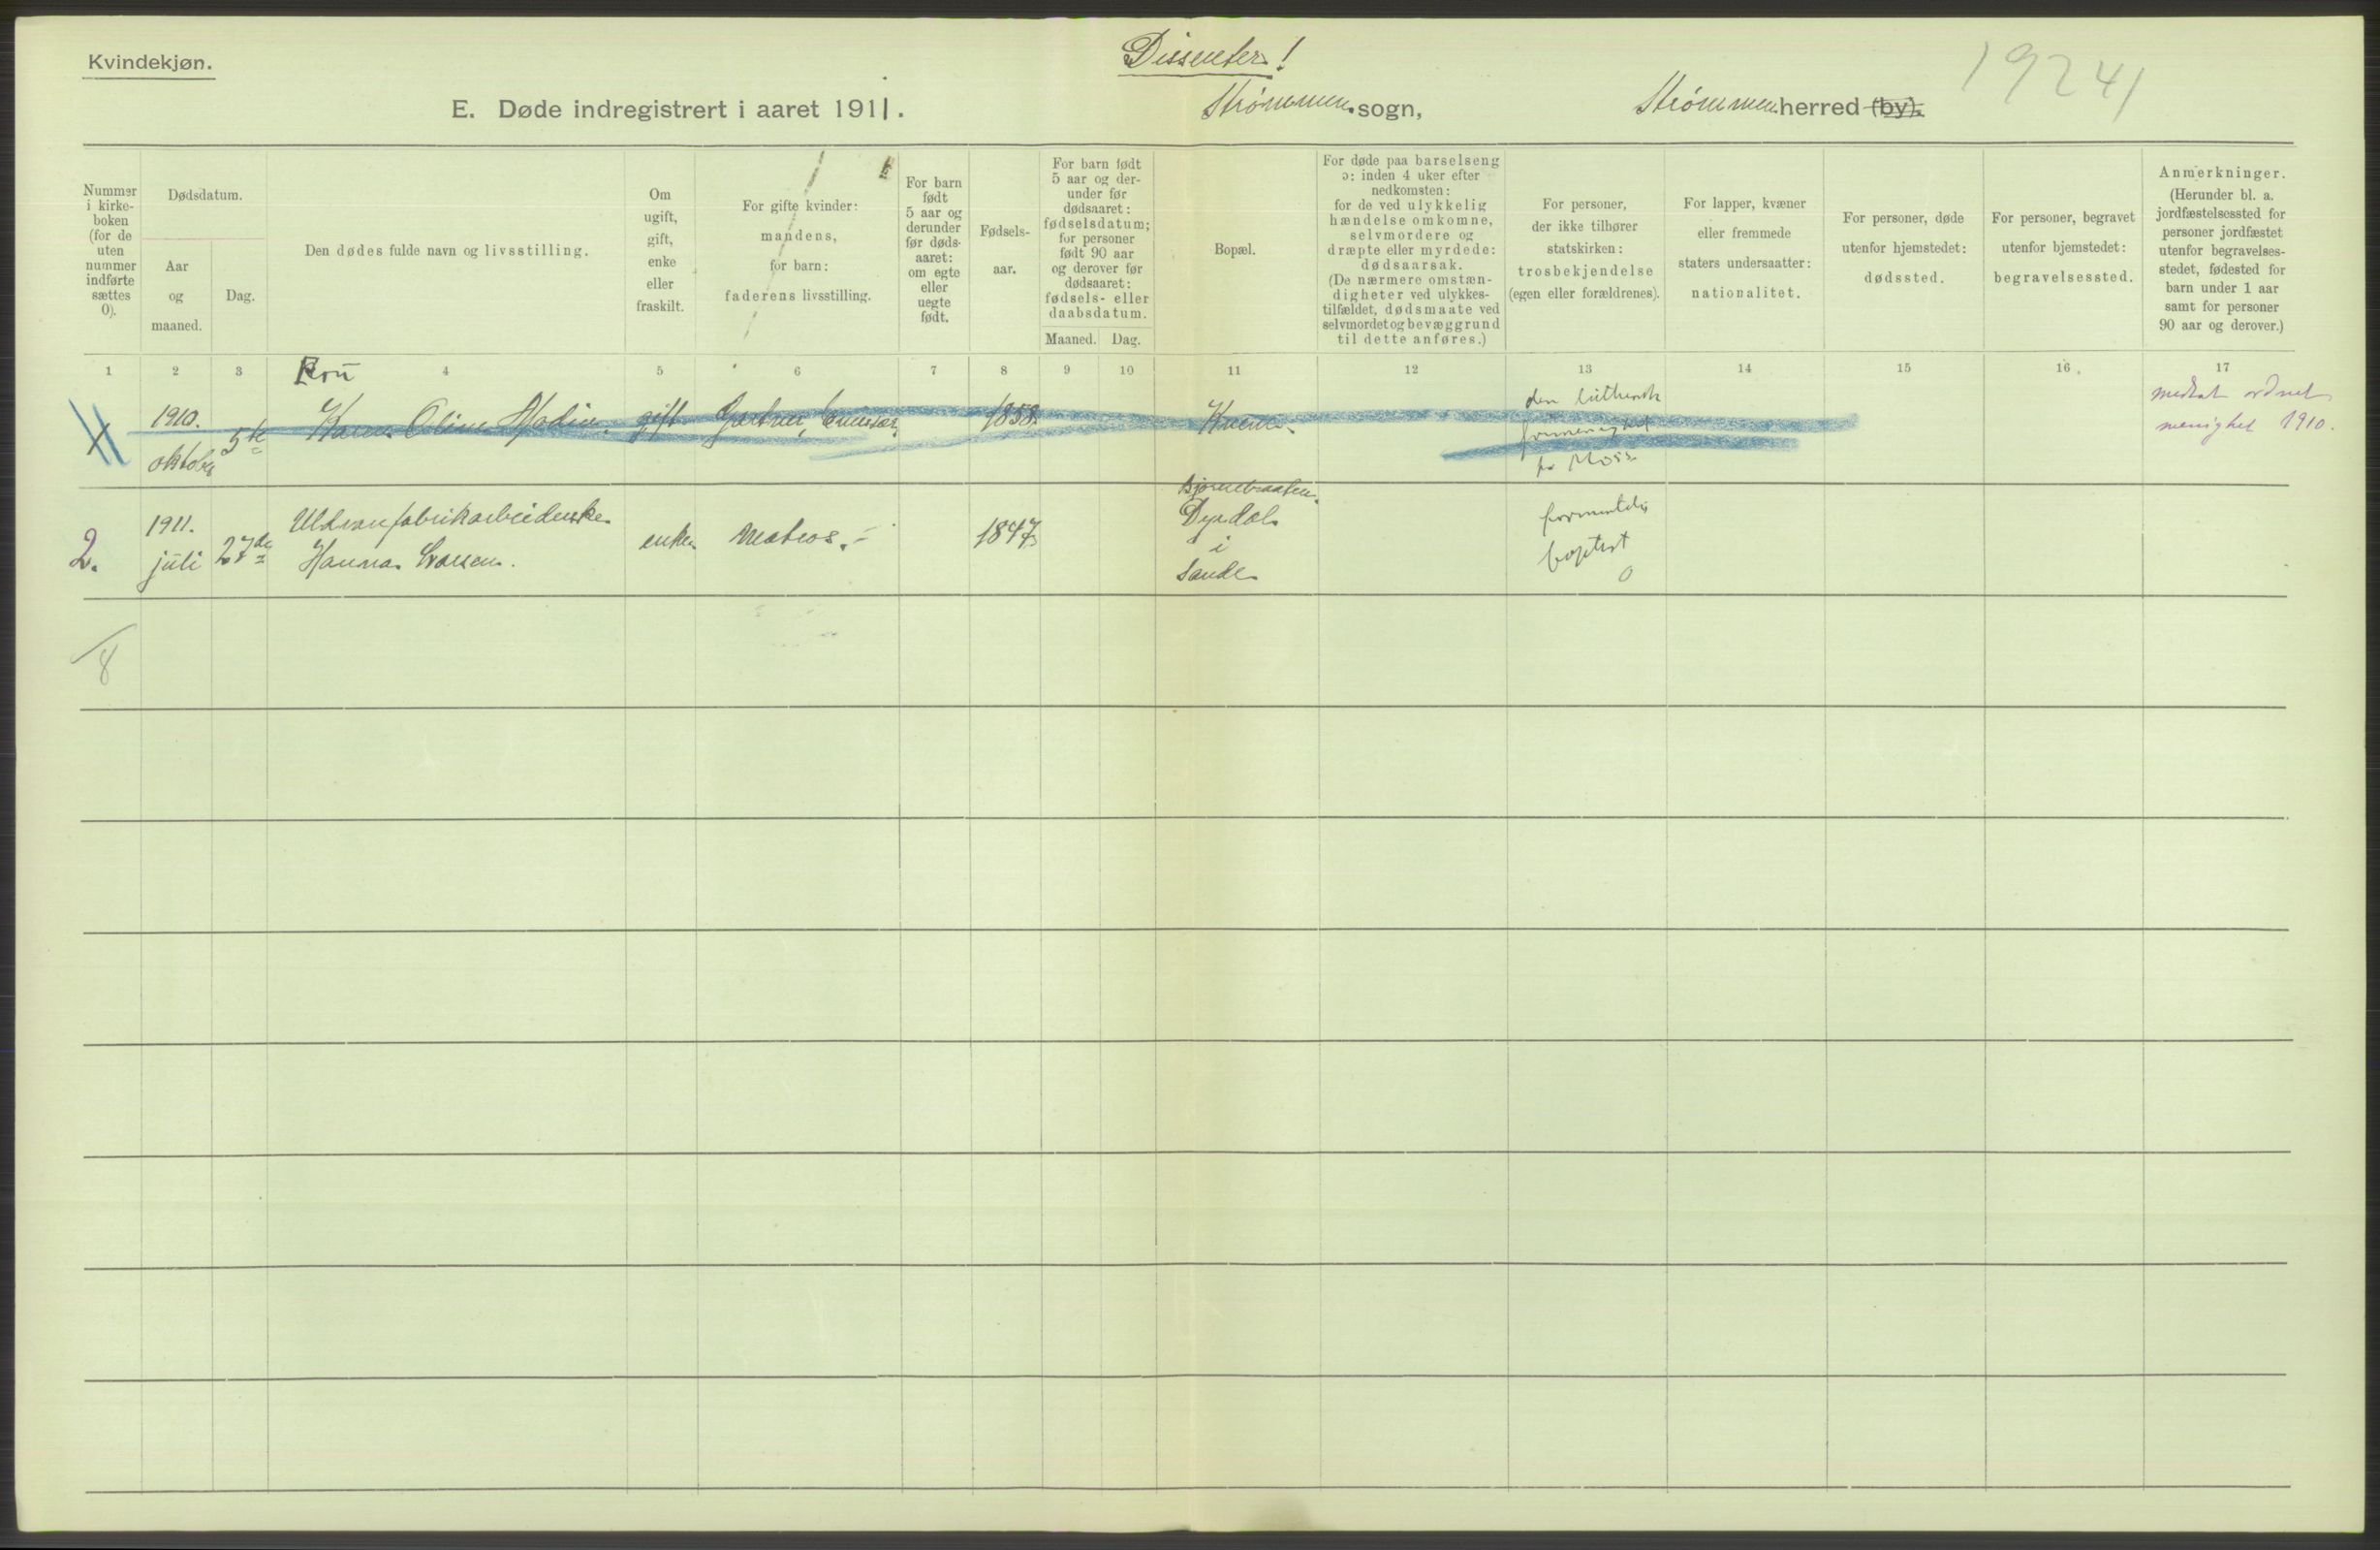 Kvindekjøn.
Dissenter!
19241
E. Døde indregistrert i aaret 1911.
Strømmen sogn,
Strømmen herred (by).
Nummer
i kirke-
boken
(for de
uten
nummer
indførte
sættes
0).
Dødsdatum.
Aar
og
maaned.
Dag.
Den dødes fulde navn og livsstilling.
Om
ugift,
gift,
enke
eller
fraskilt.
For gifte kvinder:
mandens,
for barn:
faderens livsstilling.
For barn
født
5 aar og
derunder
før døds-
aaret:
om egte
eller
uegte
født.
Fødsels-
aar.
For barn født
5 aar og der-
under før
dødsaaret:
fødselsdatum;
for personer
født 90 aar
og derover før
dødsaaret:
fødsels- eller
daabsdatum.
Maaned. Dag.
Bopæl.
For døde paa barselseng
ɔ: inden 4 uker efter
nedkomsten:
for de ved ulykkelig
hændelse omkomne,
selvmordere og
dræpte eller myrdede:
dødsaarsak.
(De nærmere omstæn-
digheter ved ulykkes-
tilfældet, dødsmaate ved
selvmordet og bevæggrund
til dette anføres.)
For personer,
der ikke tilhører
statskirken:
trosbekjendelse
(egen eller forældrenes).
For lapper, kvæner
eller fremmede
staters undersaatter:
nationalitet.
For personer, døde
utenfor hjemstedet:
dødssted.
For personer, begravet
utenfor hjemstedet:
begravelsessted.
Anmerkninger.
(Herunder bl. a.
jordfæstelsessted for
personer jordfæstet
utenfor begravelses-
stedet, fødested for
barn under 1 aar
samt for personer
90 aar og derover.)
1 2 3 4 5 6 7 8 9 10 11 12 13 14 15 16 17
1910.
oktober
5te
Oline
gift
Gartner,
1858.
den luthersk
frimenighet
Moss
ordnet
menighet 1910.
2.
1911.
juli
27de
Uldvarefabrikarbeiderske
Hanna Larsen.
enke
Matros.
1847
Bjørnebraaten.
Dyrdal
i
Sande
formentlig
baptist
0
8